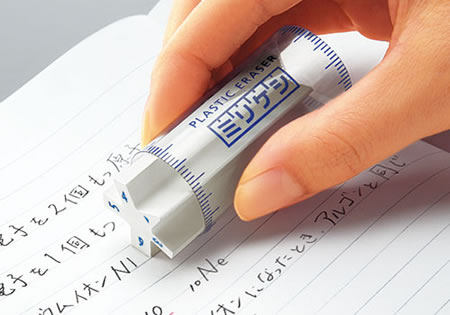 PLASTIC ERASER
ミリケシ
子を2個もつ原子
子を1個もつ
ウムイオン N
10Ne
イオンになったとき、アルゴンと同じ